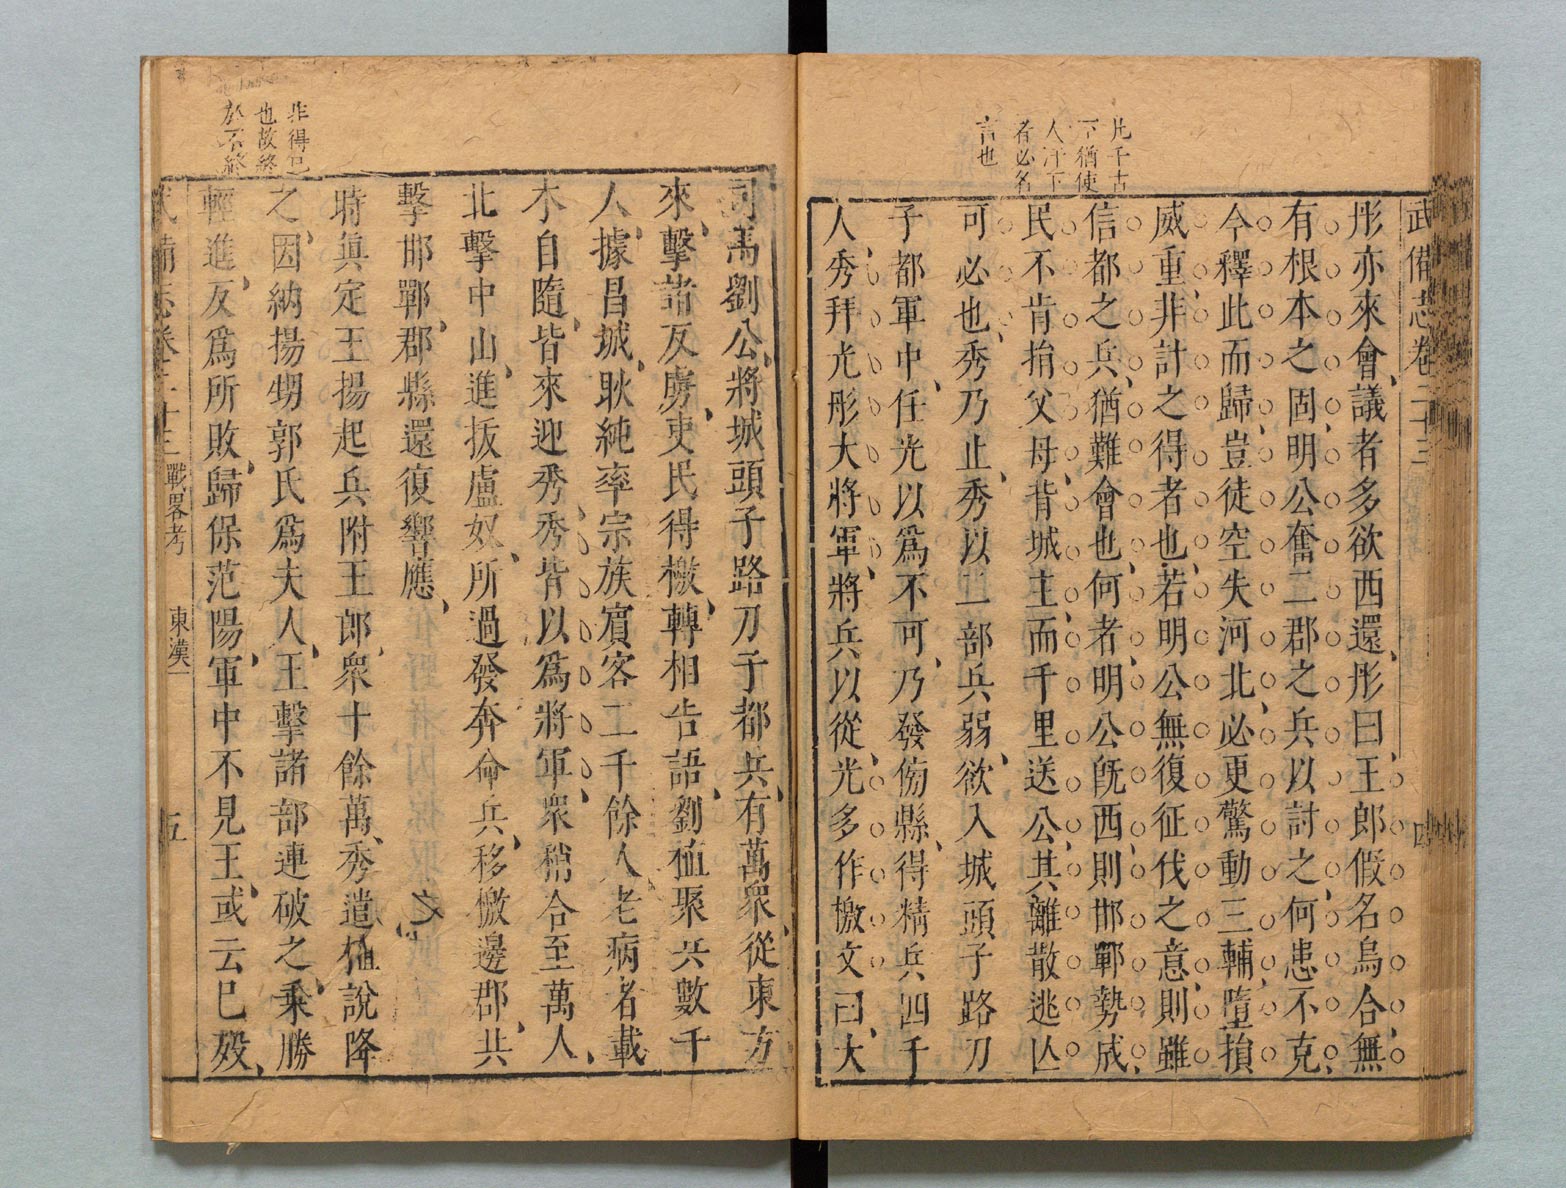 武備志卷二十三
四
此千古
下猶使
人汗下
者必名
言也
彤亦來會、議者多欲西還、彤曰、王郎假名烏合、無
有根本之固、明公奮二郡之兵以討之、何患不克、
今釋此而歸、豈徒空失河北、必更驚動三輔、墮損
威重、非計之得者也、若明公無復征伐之意、則雖
信都之兵、猶難會也、何者、明公旣西、則邯鄲勢成、
民不肯捐父母、背城主、而千里送公、其離散逃亾
可必也、秀乃止、秀以二部兵弱、欲入城頭子路刀
子都軍中、任光以爲不可、乃發傍縣、得精兵四千
人、秀拜光彤大將軍、將兵以從、光多作檄文曰、大
司馬劉公、將城頭子路刀子都兵、有萬衆、從東方
來、擊諸反虜、吏民得檄、轉相告語、劉植聚兵數千
人、據昌城、耿純率宗族賓客二千餘人、老病者載
木自隨、皆來迎秀、秀皆以爲將軍、衆稍合至萬人、
北擊中山、進拔盧奴、所過發奔命兵、移檄邊郡、共
擊邯鄲、郡縣還復響應、之、
時眞定王揚起兵附王郎、衆十餘萬、秀遣植說降
之、因納揚甥郭氏爲夫人、王擊諸部連破之、乘勝
輕進、反爲所敗、歸保范陽、軍中不見王、或云已歿、
非得已
也故終
於不終
武備志卷二十三 戰畧考 東漢一 五